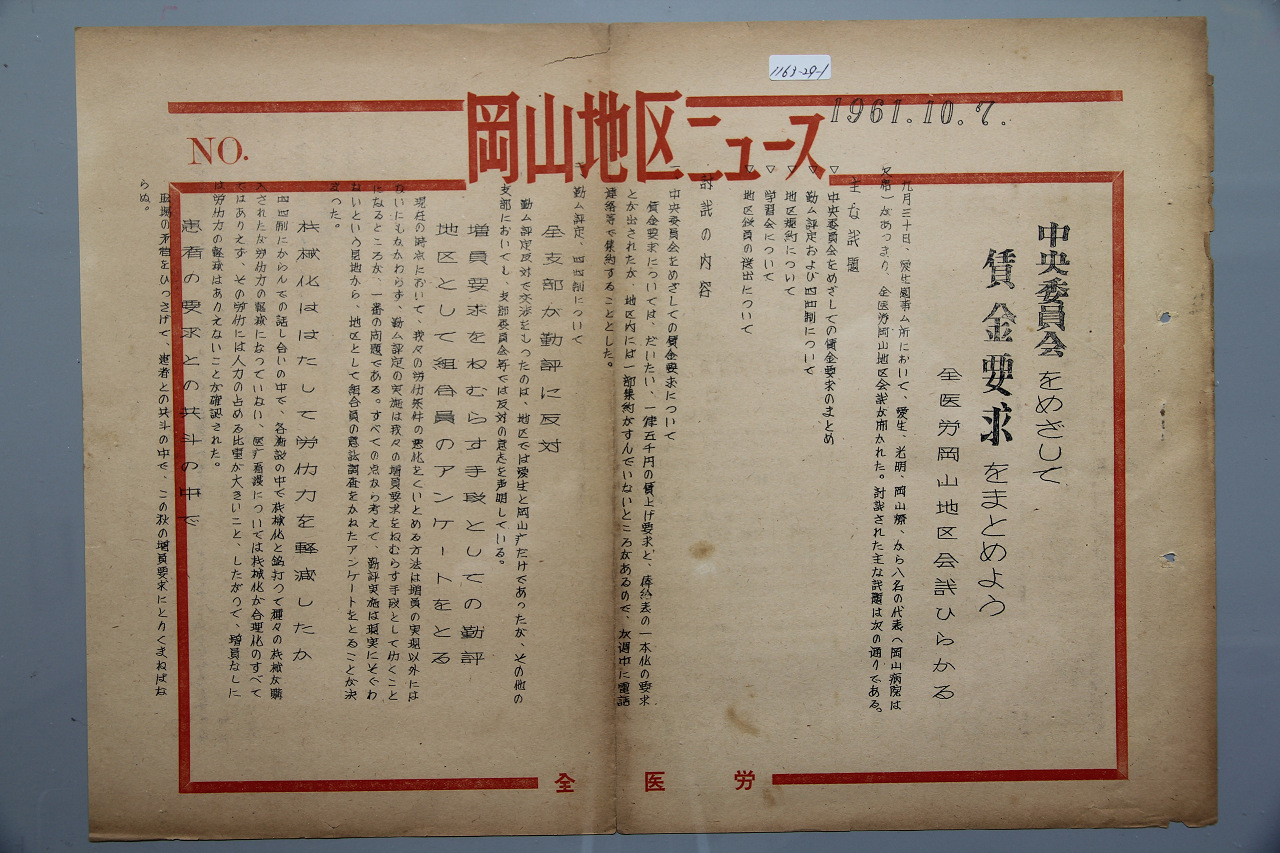 1163-29-1
岡山地区ニュース
1961.10.7.
NO.
中央委員会をめざして
賃金要求をまとめよう
全医労岡山地区会議ひらかる
九月三十日、愛生園事ム所において、愛生、光明、岡山療、から八名の代表(岡山病院は
欠席)があつまり、全医労岡山地区会議が開かれた。討議された主な議題は次の通りである。
主な議題
▽中央委員会をめざしての賃金要求のまとめ
▽勤ム評定および四四制について
▽地区規約について
▽学習会について
▽地区役員の選出について
討議の内容
中央委員会をめざしての賃金要求について
賃金要求については、だいたい、一律五千円の賃上げ要求と、俸給表の一本化の要求
とが出されたが、地区内には一部集約がすんでいないところがあるので、次週中に電話
連絡等で集約することとした。
勤ム評定、四四制について
全支部が勤評に反対
勤ム評定反対で交渉をもったのは、地区では愛生と岡山療だけであったが、その他の
支部においても、支部委員会等では反対の意志を声明している。
増員要求をねむらす手段としての勤評
地区として組合員のアンケートをとる
現在の時点において、我々の労仂条件の悪化をくいとめる方法は増員の実現以外には
ないにもかかわらず、勤ム評定の実施は我々の増員要求をねむらす手段として仂くこと
になるところが、一番の問題である。すべての点から考えて、勤評実施は現実にそぐわ
ないという見地から、地区として組合員の意識調査をかねたアンケートをとることが決
まった。
機械化ははたして労仂力を軽減したか
四四制にからんでの話し合いの中で、各施設の中で機械化と銘打つて種々の機械が購
入されたが労仂力の軽減になっていない、医療看護については機械化が合理化のすべて
ではありえず、その労仂には人力の占める比重が大きいこと、したがって、増員なしに
は労仂力の軽減はありえないことが確認された。
患者の要求との共斗の中で
職場の矛盾をひっさげて、患者との共斗の中で、この秋の増員要求にとりくまねばな
らぬ。
全医労